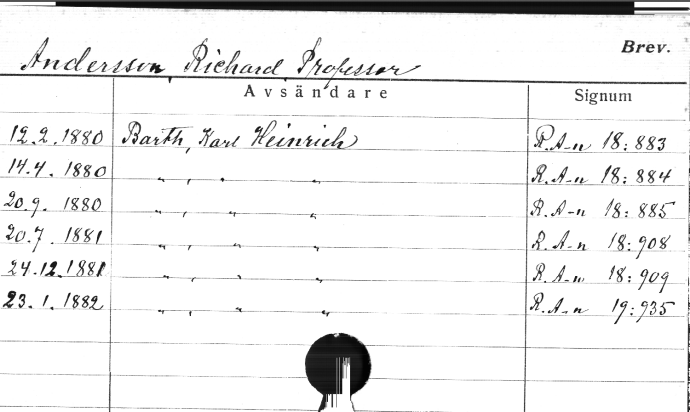 Brev.
Andersson, Richard, Professor
Avsändare Signum
12.2.1880 Barth, Karl Heinrich R.A-n 18:883
14.4.1880 " , " " R.A-n 18:884
20.9.1880 " , " " R.A-n 18:885
20.7.1881 " , " " R.A-n 18:908
24.12.1881 " , " " R.A-n 18:909
23.1.1882 " , " " R.A-n 19:935